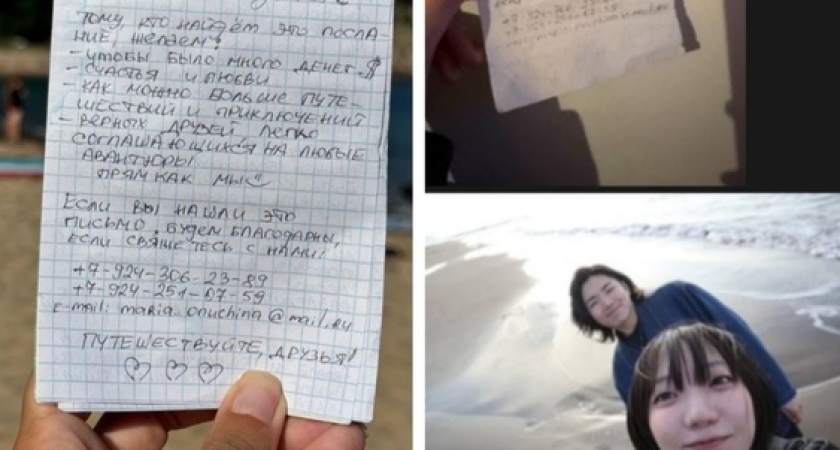 Тому, кто найдём это посла-
ние, желаем:
- чтобы было много денег $
- счастья и любви
- как можно больше путе-
шествий и приключений
- верных друзей, легко
соглашающихся на любые
авантюры.
прям как мы
Если вы нашли это
письмо, будем благодарны,
если свяжетесь с нами:
+7-924-306-23-89
+7-924-251-07-59
e-mail: maria.onuchina@mail.ru
Путешествуйте, друзья!